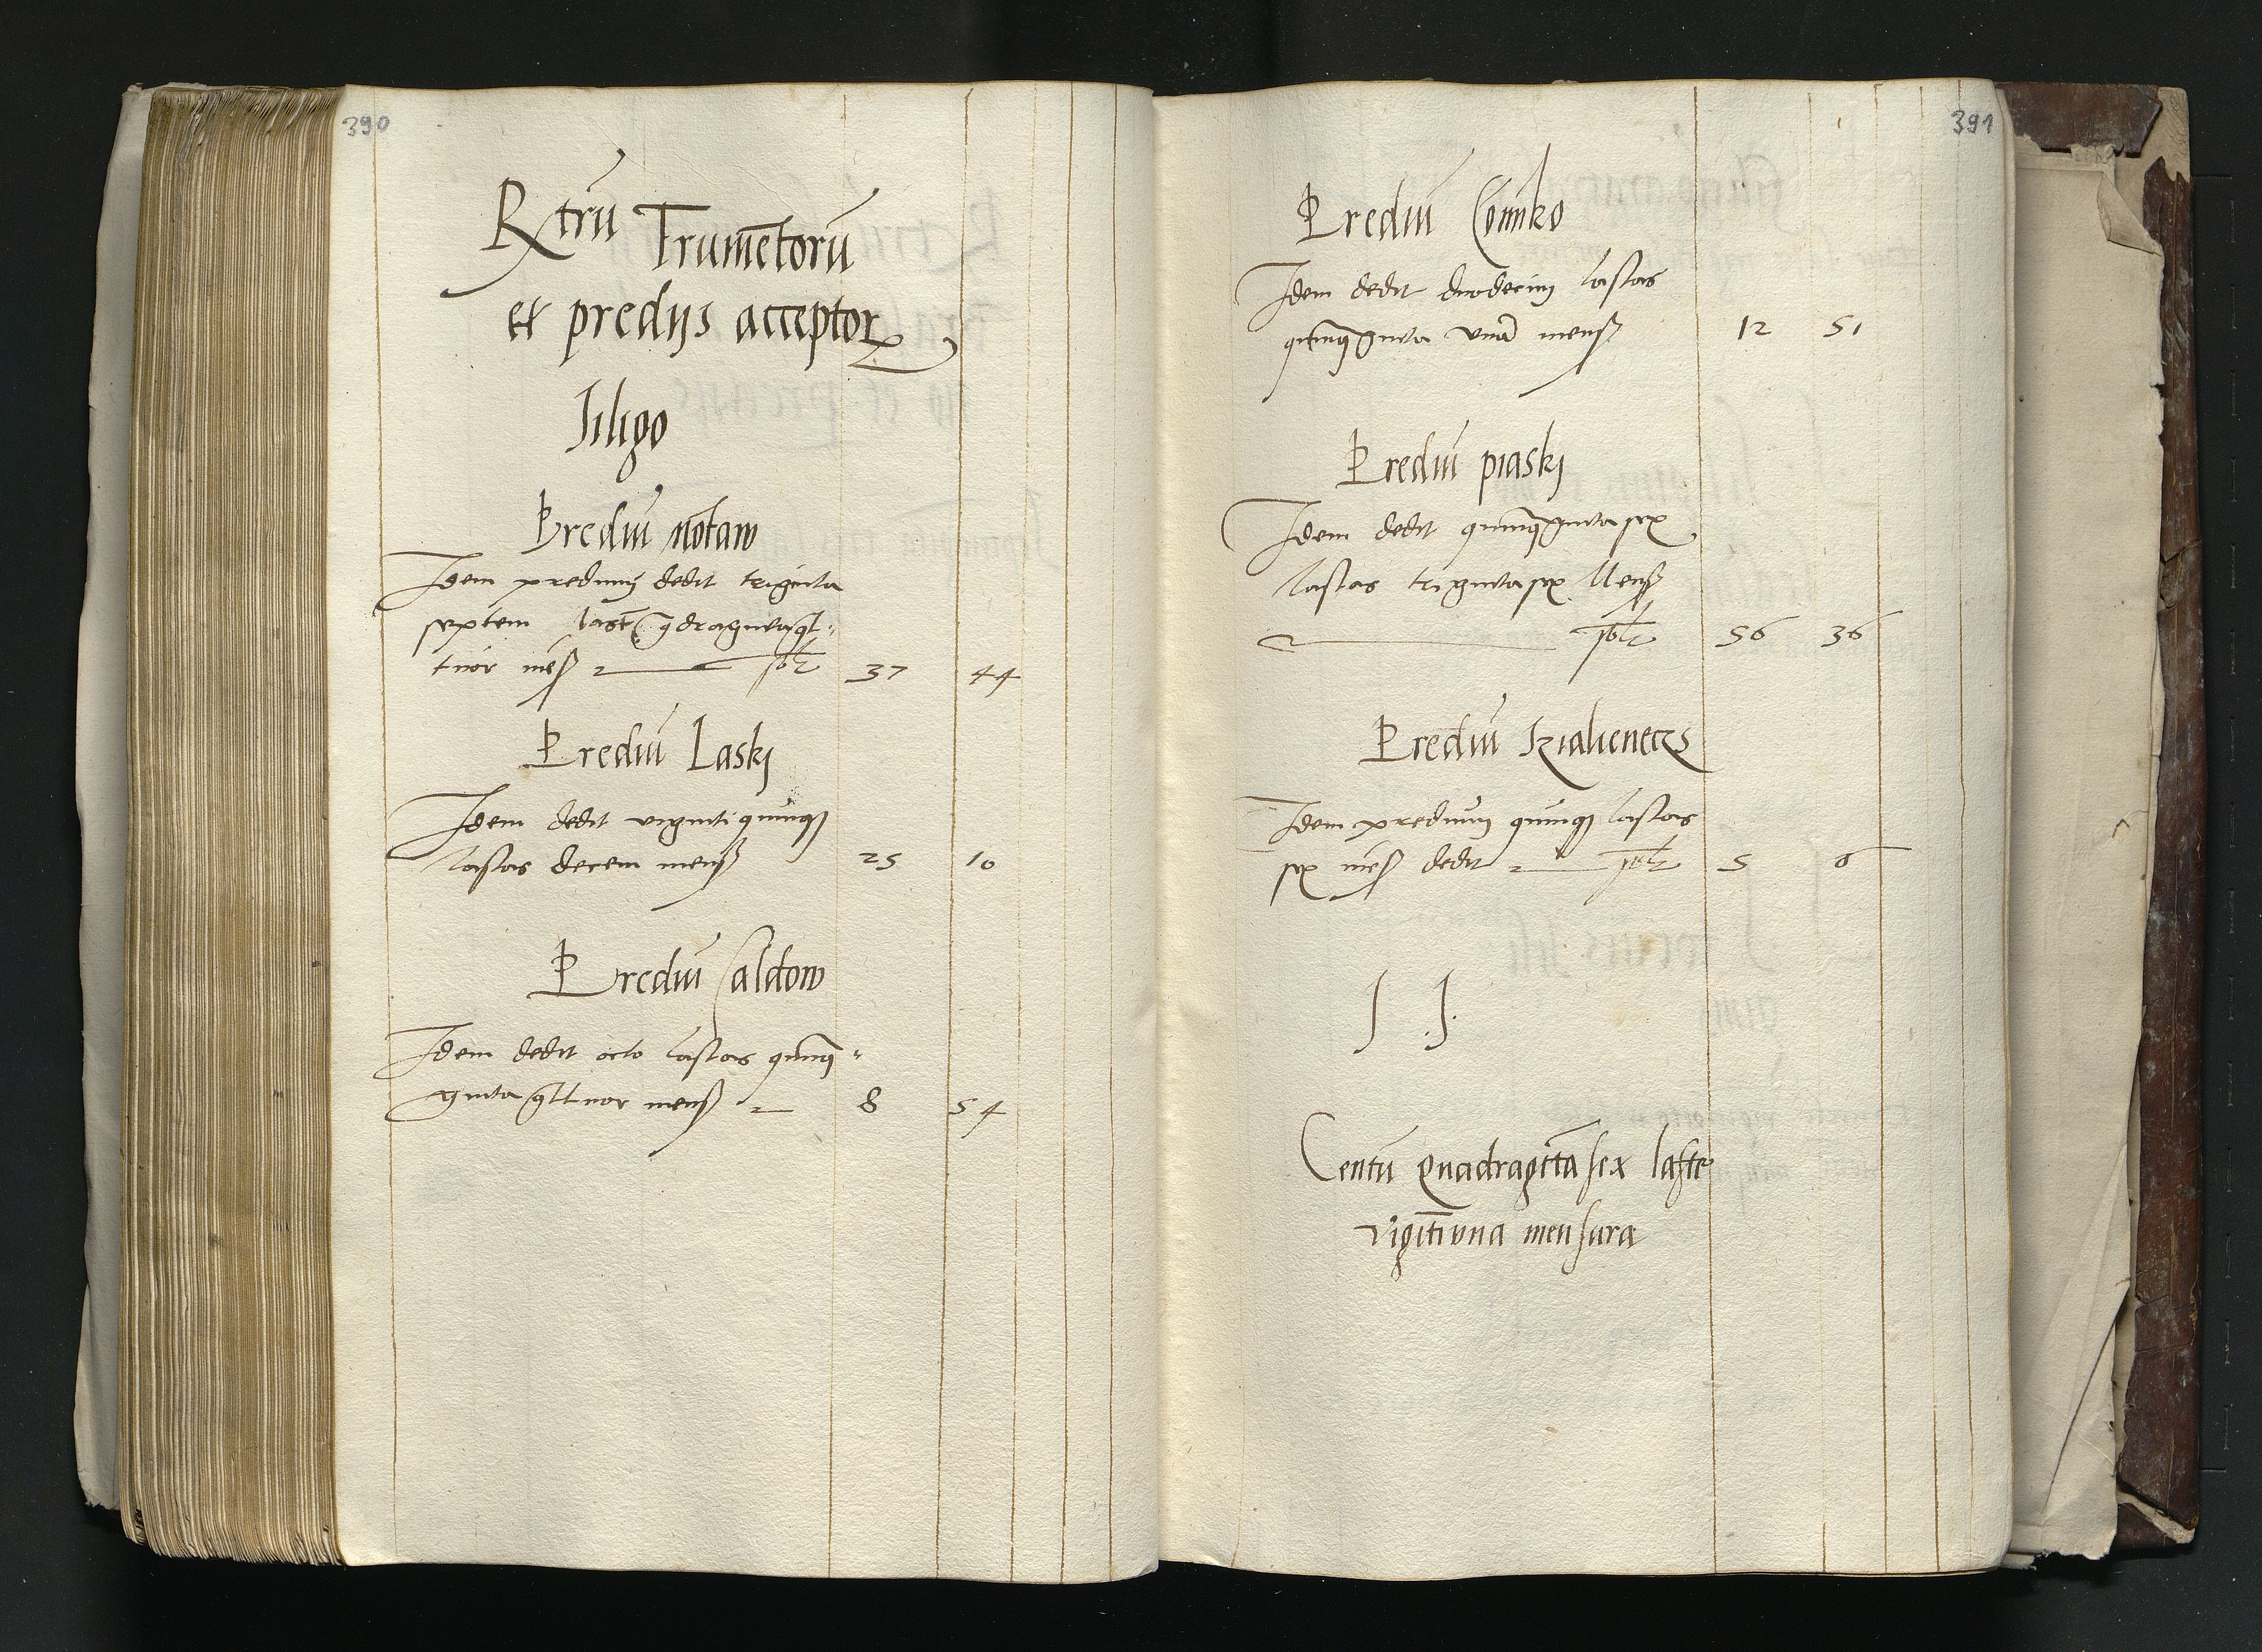 390
Rxtrū Frumētorū
et predijs acceptorꝝ
Siligo
Prediū notaw
Idem predium dedit triginta
septem last qdragintaqt=
tuor mēs fɫt 37 44
Prediū Laskj
Idem dedit vigintiquinqꝫ
lastas decem mens 25 10
Prediū Saldow
Idem dedit octo lastas quinq=
ginta qttuor mens 8 54
391
Prediū Comko
Idem dedit duodecim lastas
quinqginta vnā mens 12 51
Prediū piaskj
Idem dedit quinqgintasex
lastas trigintasex Mens
56 36
Prediū
Idem predium quinqꝫ lastas
sex mēs dedit 5 6
S S.
Centū quadragītasex laste
vigītivna mensura